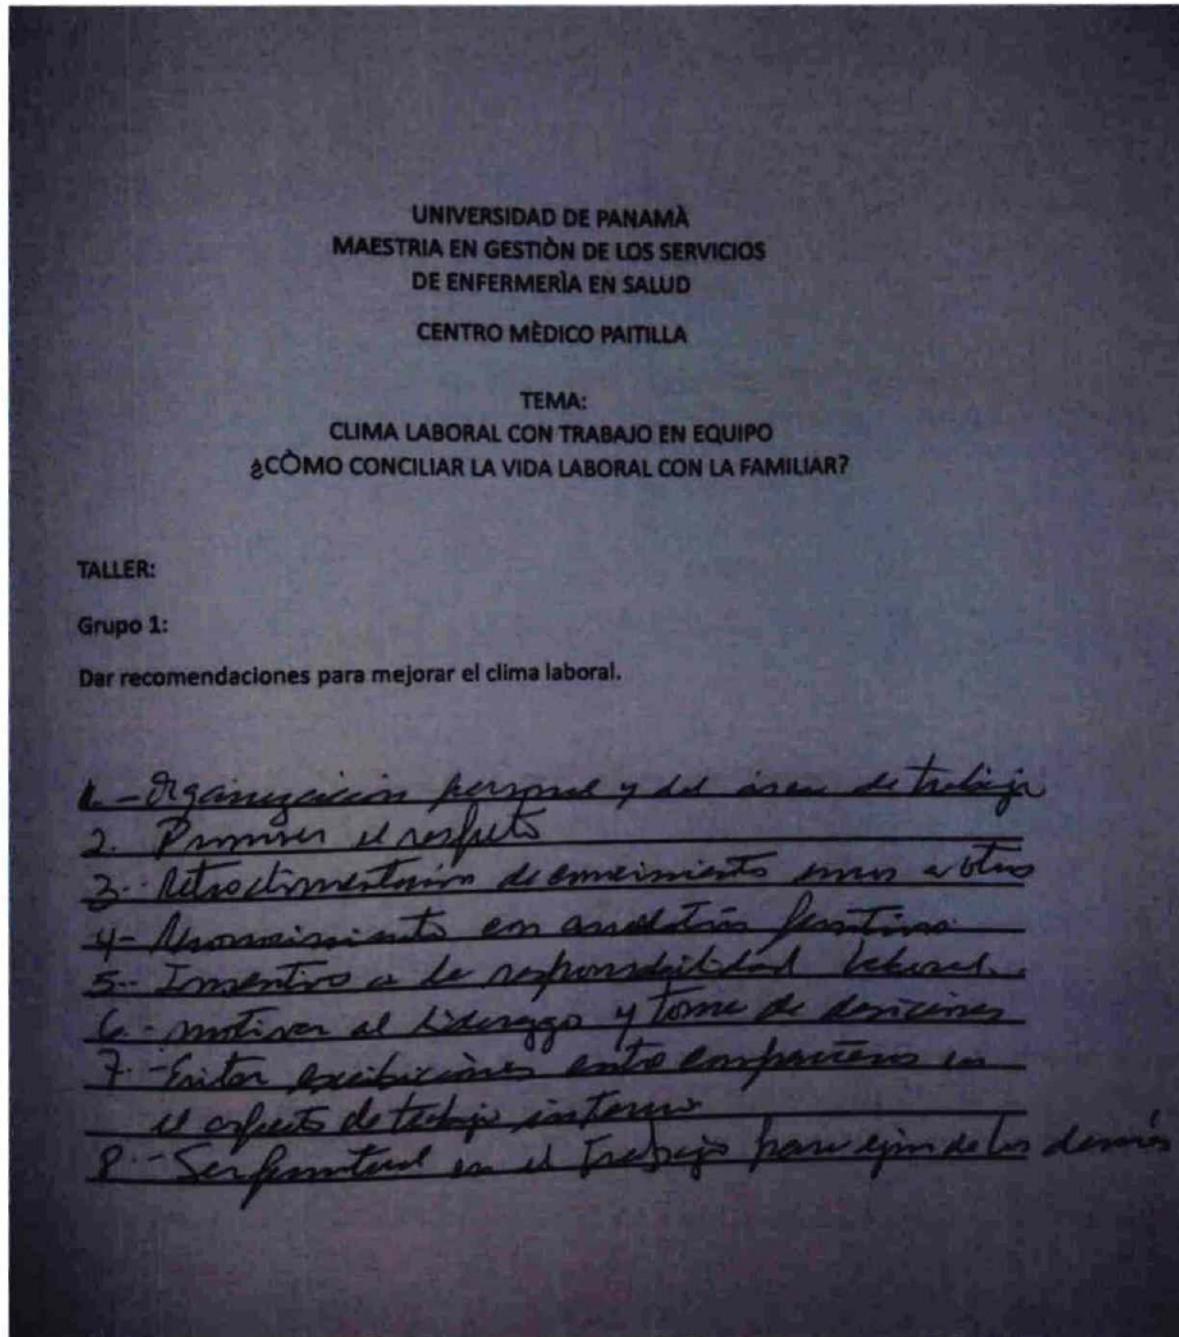 UNIVERSIDAD DE PANAMÀ
MAESTRIA EN GESTIÒN DE LOS SERVICIOS
DE ENFERMERÌA EN SALUD
CENTRO MÈDICO PAITILLA
TEMA:
CLIMA LABORAL CON TRABAJO EN EQUIPO
¿CÒMO CONCILIAR LA VIDA LABORAL CON LA FAMILIAR?
TALLER:
Grupo 1:
Dar recomendaciones para mejorar el clima laboral.
1.- Organización personal y del área de trabajo
2. Promover el respeto
3.- Retroalimentación de conocimiento unos a otros
4- Reconocimiento en positivo
5.- Insentivo a la responsabilidad laboral.
6.- motivar al liderazgo y toma de
7.- Evitar entre compañeros en
el aspecto de trabajo interno
8.- Ser puntual en el trabajo para ejm de los demás